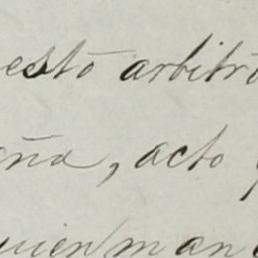 esto arbitr
aña, acto
uien man